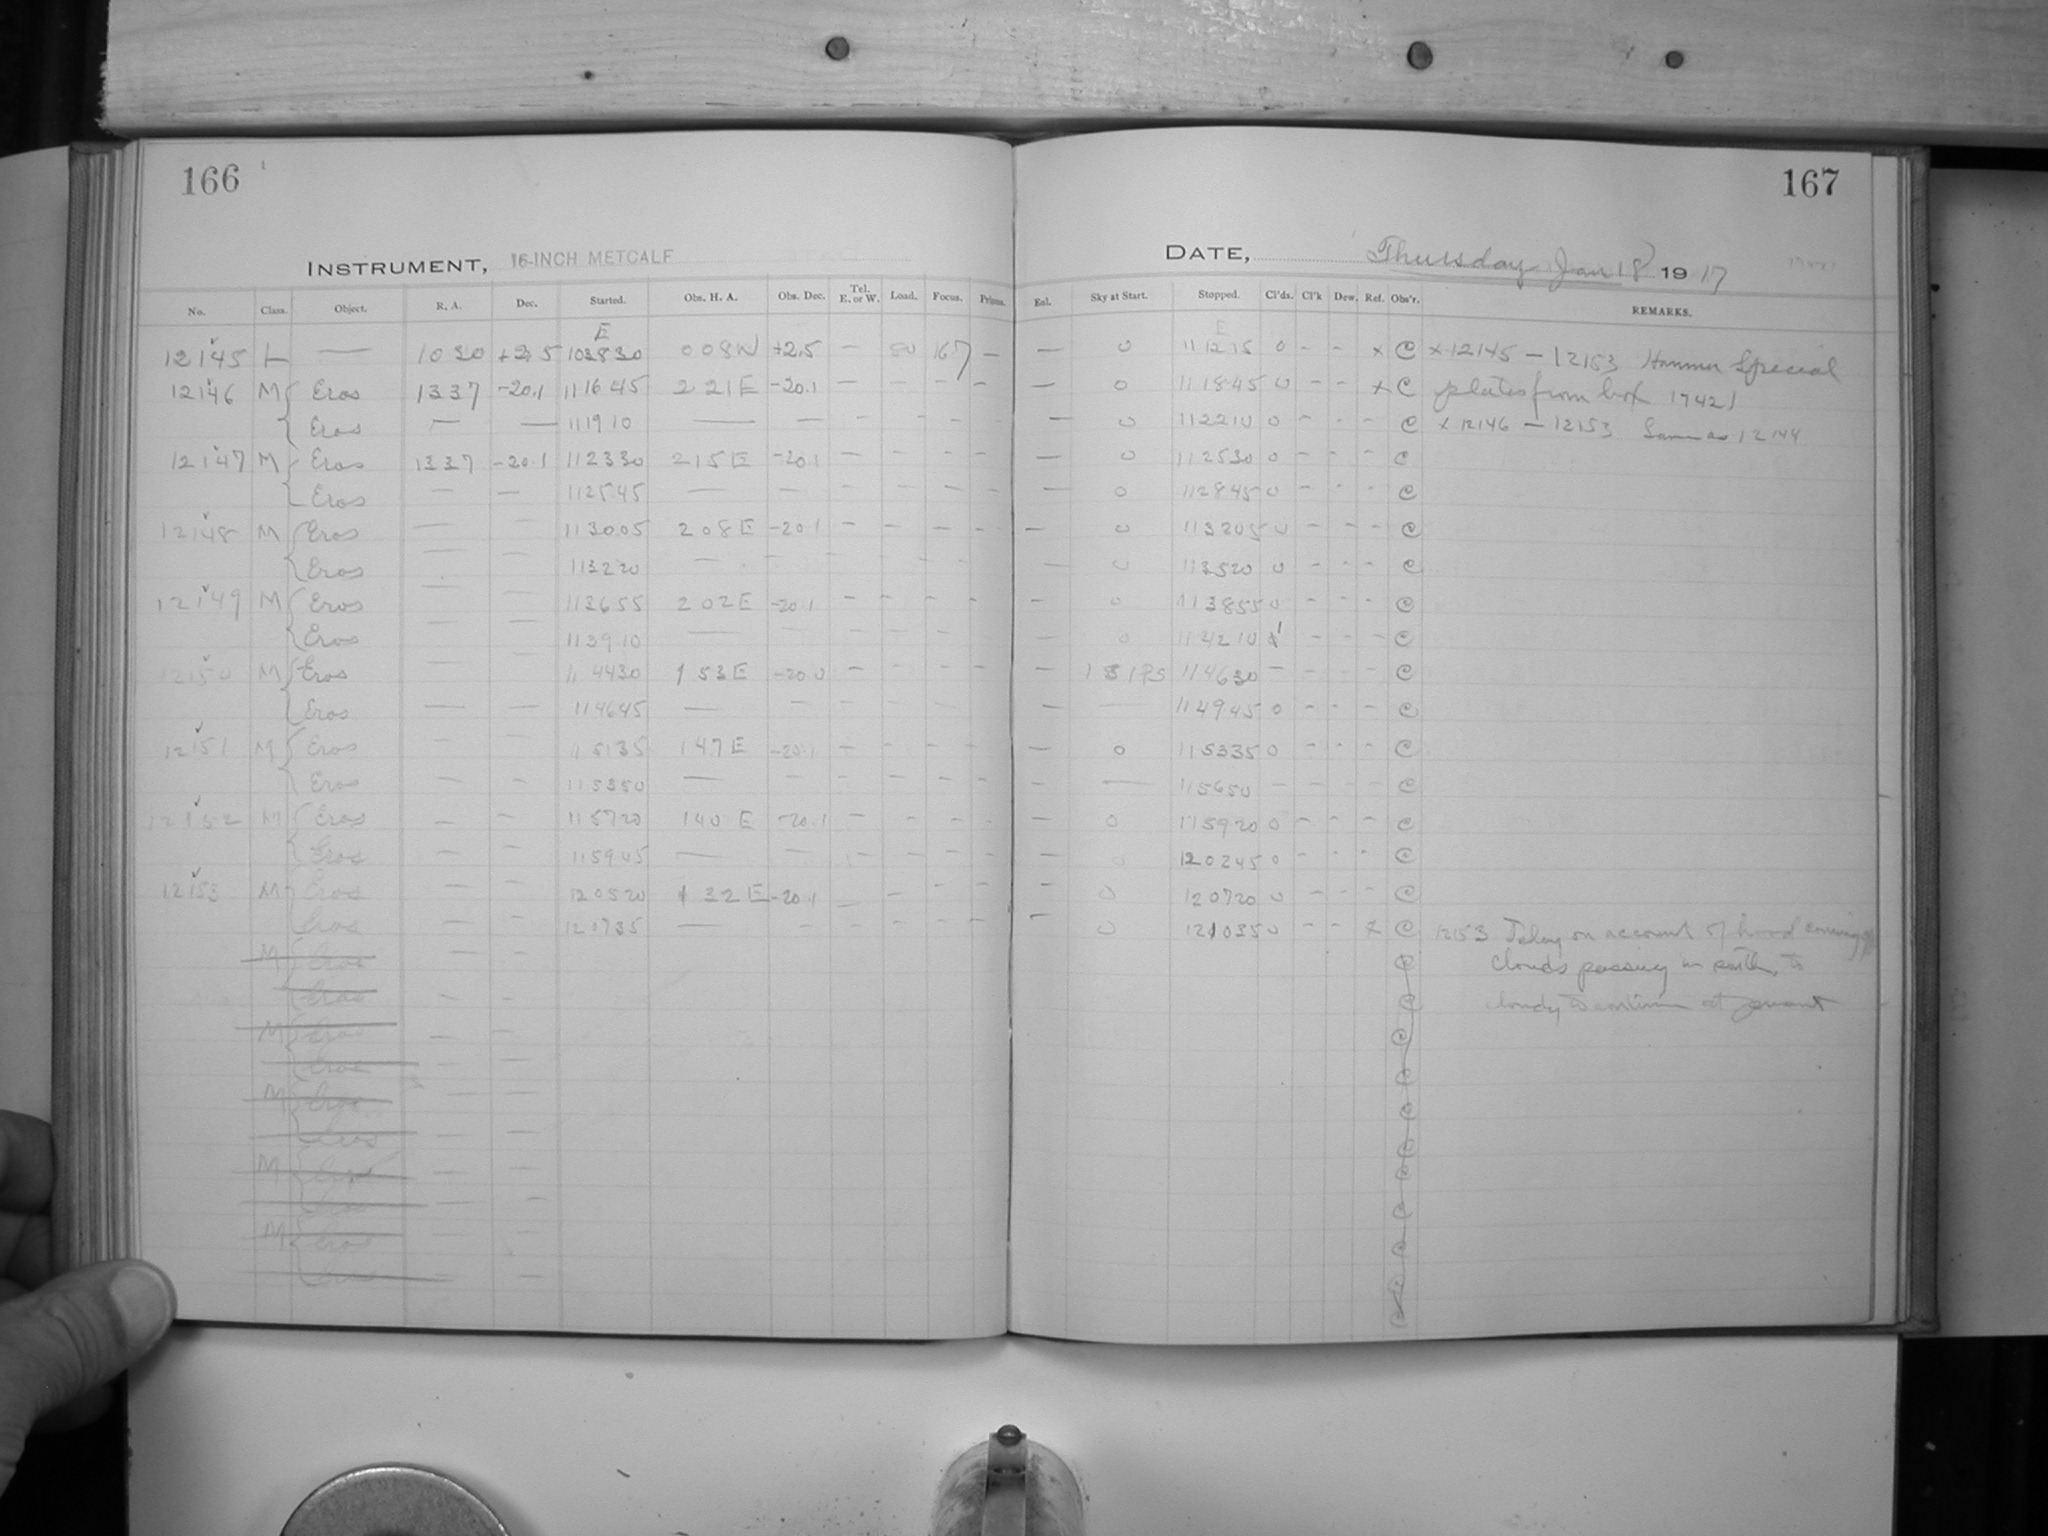 166
167
INSTRUMENT, 16-INCH METCALF
DATE, Thursday Jan 18 1917
No. Class. Object. R. A. Dec. Started. Obs. H. A. Obs. Dec. Tel. E. or W. Load. Focus. Prisms. Eul. Sky at Start. Stopped. Cl'ds. Cl'k Dew. Ref. Obs'r. REMARKS.
E E
12145 L — 10 30 +2.5 103830 008W +2.5 — 80 167 — — 0 111215 0 - - x C x 12145 — 12153 Hammer Special
12146 M Eros 1337 -20.1 111645 221E -20.1 — — — — — 0 111845 0 - - x C plates from box 17421
Eros — — 111910 — — — — — — — 0 112210 0 - - - C x 12146 — 12153 Same as 12144
12147 M Eros 1337 -20.1 112330 215E -20.1 — — — — — 0 112530 0 - - - C
Eros — — 112545 — — — — — — — 0 112845 0 - - - C
12148 M Eros — — 113005 208E -20.1 — — — — — 0 113205 0 - - - C
Eros — — 113220 — — — — — — 0 113520 0 - - - C
12149 M Eros — — 113655 202E -20.1 — — — — — 0 113855 0 - - - C
Eros — — 113910 — — — — — — 0 114210 1 - - - C
12150 M Eros — — 114430 153E -20.0 — — — — — 114630 - - - - C
Eros — — 114645 — — — — — — — — 114945 0 - - - C
12151 M Eros — — 115135 147E -20.1 — — — — — 0 115335 0 - - - C
Eros — — 115350 — — — — — — — — 115650 - - - - C
12152 M Eros — — 115720 140E -20.1 — — — — — 0 115920 0 - - - C
Eros — — 115945 — — — — — — — 0 120245 0 - - - C
12153 M Eros — — 120520 132E -20.1 — — — — — 0 120720 0 - - - C
Eros — — 120735 — — — — — — — 0 121035 0 - - x C 12153 Delay on account of hood coming
M Eros C clouds passing in south, to
Eros — — C cloudy to continue at present
M Eros — — C
Eros — — C
M Eros — — C
Eros — — C
M Eros — — C
Eros — — C
M Eros — — C
Eros — — C